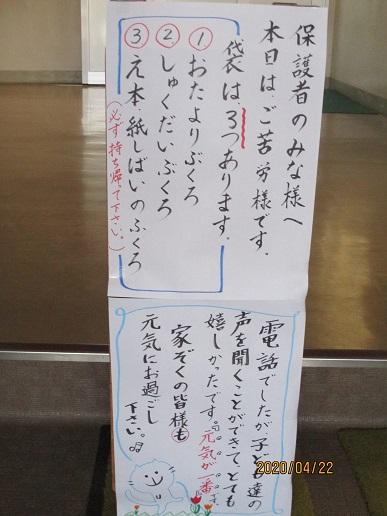 保護者のみな様へ
本日は、ご苦労様です。
袋は、3つあります。
① おたよりぶくろ
② しゅくだいぶくろ
③ え本・紙しばいのふくろ
(必ず持ち帰って下さい。)
電話でしたが子ども達の
声を聞くことができて、とても
嬉しかったです。♫元気が一番です
家ぞくの皆様も
元気にお過ごし
下さい。♫
2020/04/22